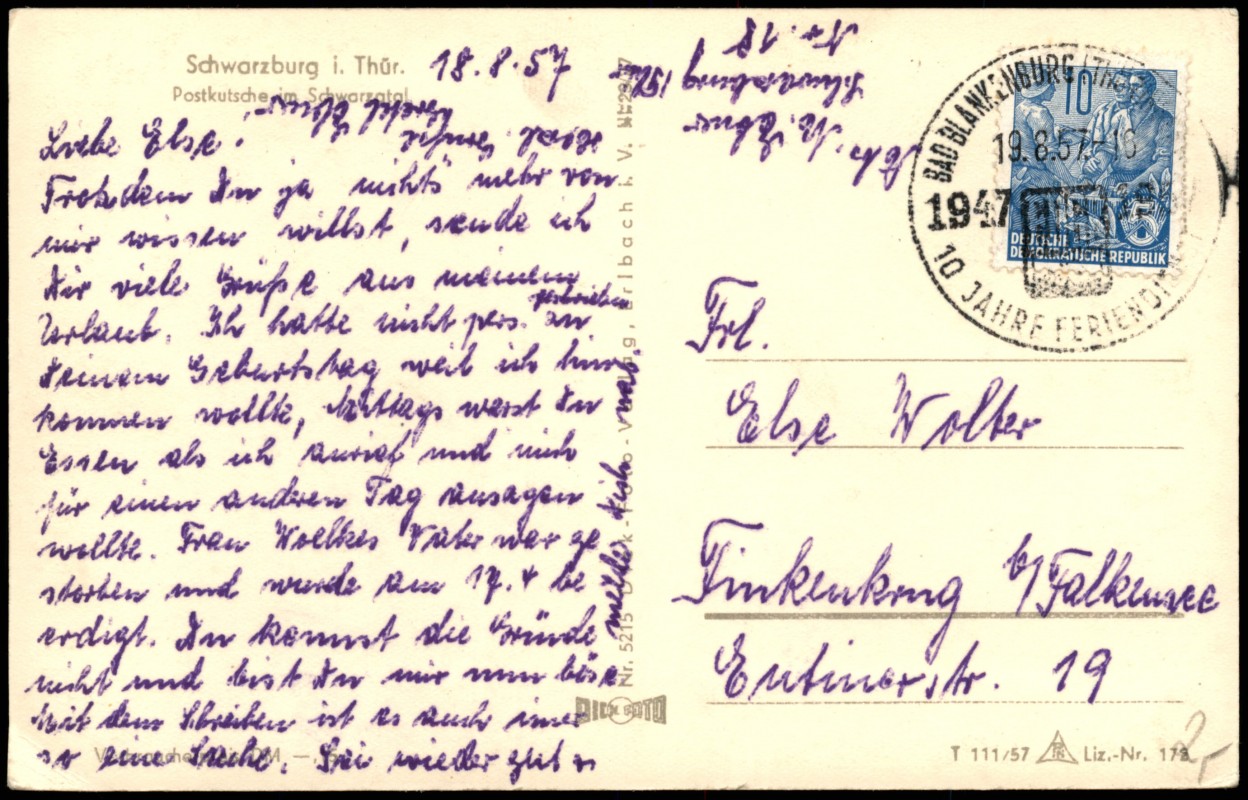 Schwarzburg i. Thür.
Postkutsche im Schwarzatal
18.8.57
Liebe Else!
Trotzdem Du ja nichts mehr von
mir wissen willst, sende ich
Dir viele Grüße aus meinem
Urlaub. Ich hatte nicht pers. geschrieben an
Deinem Geburtstag weil ich hin
kommen wollte, Mittags warst Du
Essen als ich anrief und mich
für einen anderen Tag ansagen
wollte. Frau Woelkes Vater war ge
storben und wurde am 17.4 be
erdigt. Du kennst die Gründe
nicht und bist Du mir nun böse
Mit dem Schreiben ist es auch immer
so eine Sache. Sei wieder gut u
melde Dich mal
Nr. 5215 Dick-Foto-Verlag, Erlbach i. V.
DICK FOTO
Schwarzburg / Thür
Nr. 18
BAD BLANKENBURG (THÜR
19.8.57.-16
1947
10 JAHRE FERIENDI
10
5
DEUTSCHE
DEMOKRATISCHE REPUBLIK
Frl.
Else Wolter
Finkenkrug b/Falkensee
Eutinerstr. 19
T 111/57
Liz.-Nr. 172
2,-